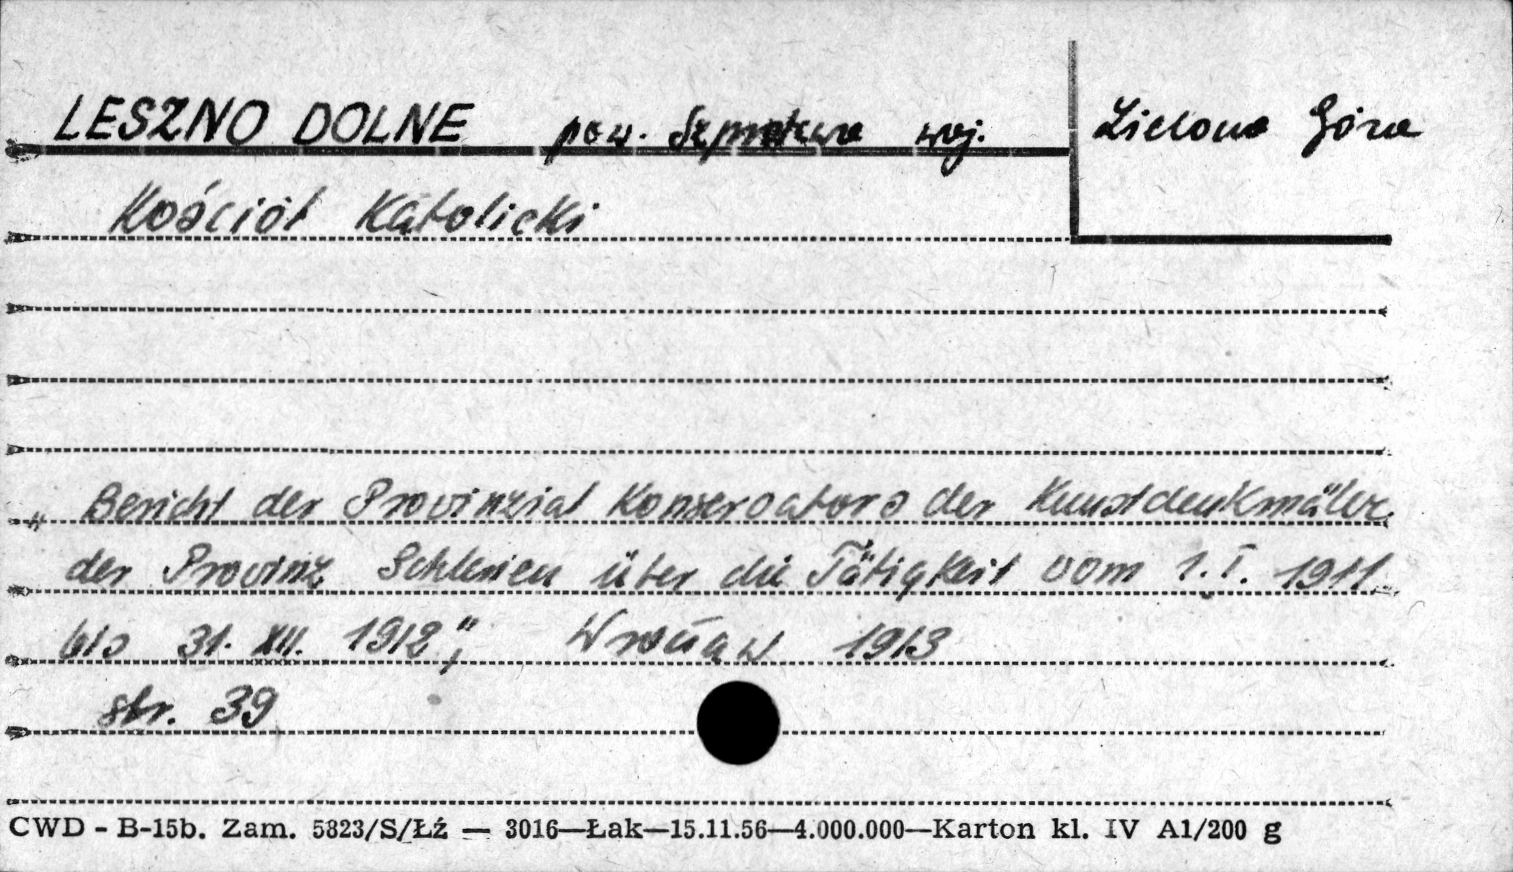 LESZNO DOLNE pow. Szprotawa woj. Zielona Góra
Kościół Katolicki
„Bericht der Provinzial Konservators der Kunstdenkmäler
der Provinz Schlesien über die Tätigkeit vom 1.I. 1911
bis 31. XII. 1912", Wrocław 1913
str. 39
CWD - B-15b. Zam. 5823/S/Łź — 3016—Łak—15.11.56—4.000.000—Karton kl. IV A1/200 g